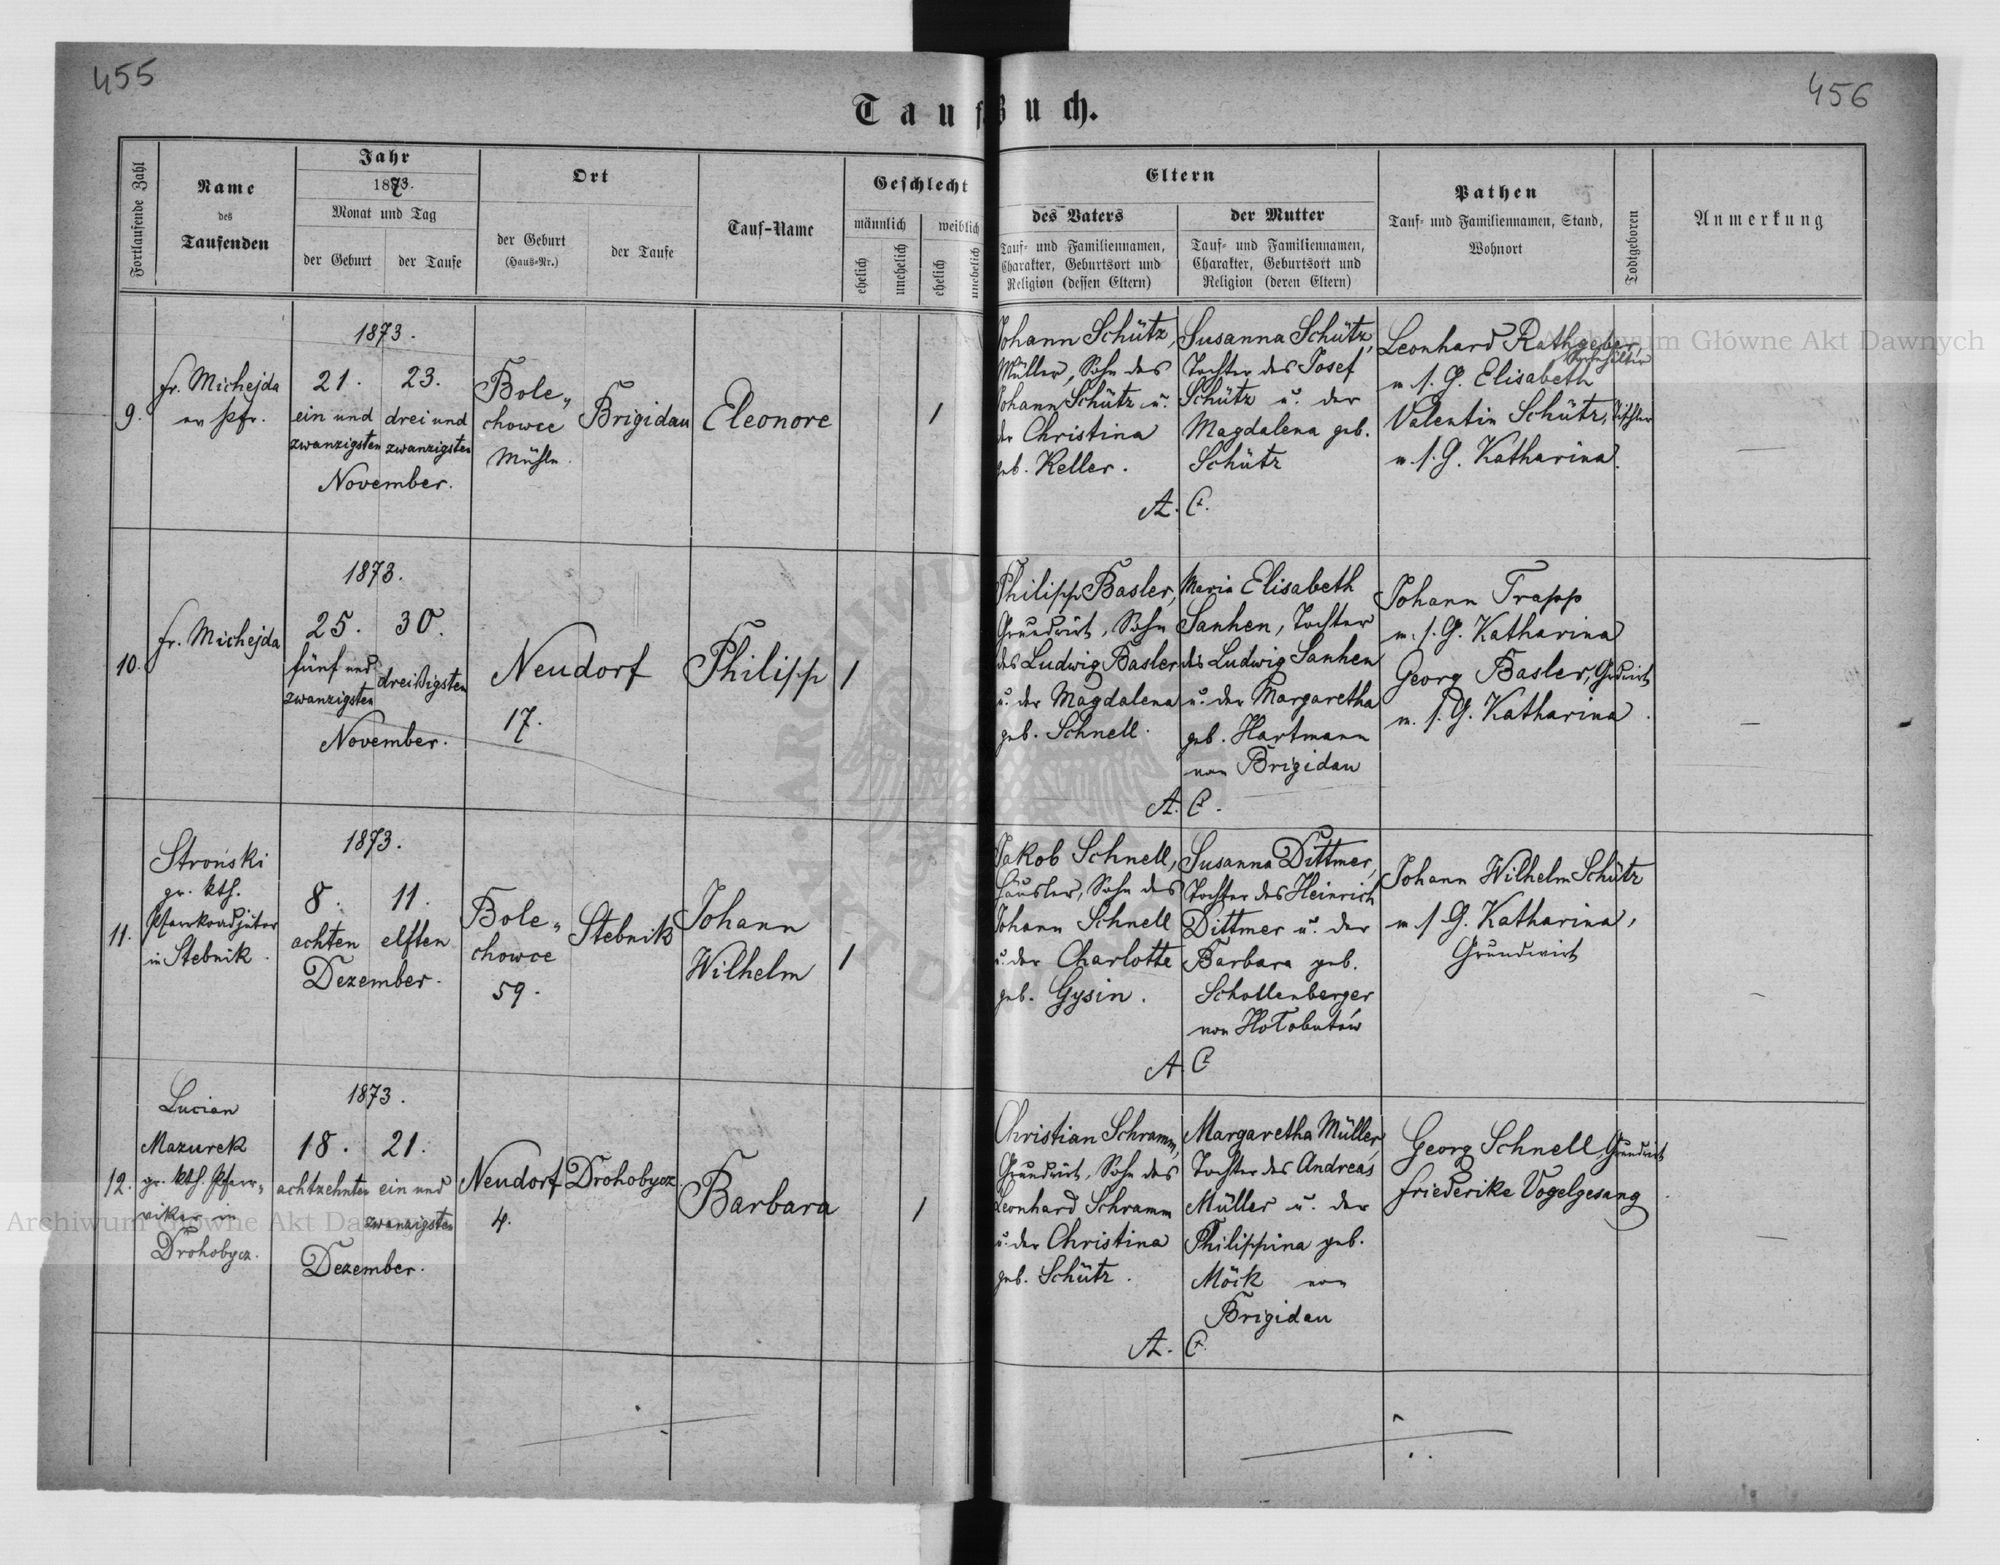 455
456
Taufbuch.
Fortlaufende Zahl
Name
des
Taufenden
Jahr
1873.
Monat und Tag
der Geburt
der Taufe
Ort
der Geburt
(Haus-Nr.)
der Taufe
Tauf-Name
Geschlecht
männlich
weiblich
ehelich
unehelich
ehelich
unehelich
Eltern
des Vaters
Tauf- und Familiennamen,
Charakter, Geburtsort und
Religion (dessen Eltern)
der Mutter
Tauf- und Familiennamen,
Charakter, Geburtsort und
Religion (deren Eltern)
Pathen
Tauf- und Familiennamen, Stand,
Wohnort
Todtgeboren
Anmerkung
9.
fr. Michejda
ev Pfr.
1873.
21.
ein und
zwanzigsten
23.
drei und
zwanzigsten
November.
Bole„
chowce
Mühle.
Brigidau
Eleonore
1
Johann Schütz,
Müller, Sohn des
Johann Schütz u.
der Christina
geb. Keller.
Susanna Schütz,
Tochter des Josef
Schütz u. der
Magdalena geb.
Schütz
A. C.
Leonhard Rathgeber,
m. s. G. Elisabeth
Valentin Schütz, Tischler
m. s. G. Katharina.
—
10.
fr. Michejda
1873.
25.
fünf und
zwanzigsten
30.
dreißigsten
November.
Neudorf
17.
Philipp
1
Philipp Basler,
Grundwirt, Sohn
des Ludwig Basler
u. der Magdalena
geb. Schnell.
Maria Elisabeth
Sanhen, Tochter
des Ludwig Sanhen
u. der Margaretha
geb. Hartmann
von Brigidau
A. C.
Johann Trapp
m. s. G. Katharina
Georg Basler, Grdwirt
m. s. G. Katharina.
—
11.
Stroński
gr. kth.
Pfarrkoadjutor
in Stebnik.
1873.
8.
achten
11.
elften
Dezember.
Bole„
chowce
59.
Stebnik
Johann
Wilhelm
1
Jakob Schnell,
Häusler, Sohn des
Johann Schnell
u. der Charlotte
geb. Gysin.
Susanna Dittmer,
Tochter des Heinrich
Dittmer u. der
Barbara geb.
Schollenberger
von Hołobutów
A. C
Johann Wilhelm Schütz
m. s. G. Katharina,
Grundwirt
—
12.
Lucian
Mazurek
gr. kth. Pfarr„
vikar in
Drohobycz.
1873.
18.
achtzehnten
21.
ein und
zwanzigsten
Dezember.
Neudorf
4.
Drohobycz
Barbara
1
Christian Schramm,
Grundwirt, Sohn des
Leonhard Schramm
u. der Christina
geb. Schütz.
Margaretha Müller,
Tochter des Andreas
Müller u. der
Philippina geb.
Möck von
Brigidau
A. C.
Georg Schnell, Grundwirt
Friederike Vogelgesang
—
Archiwum Główne Akt Dawnych
Archiwum Główne Akt Dawnych